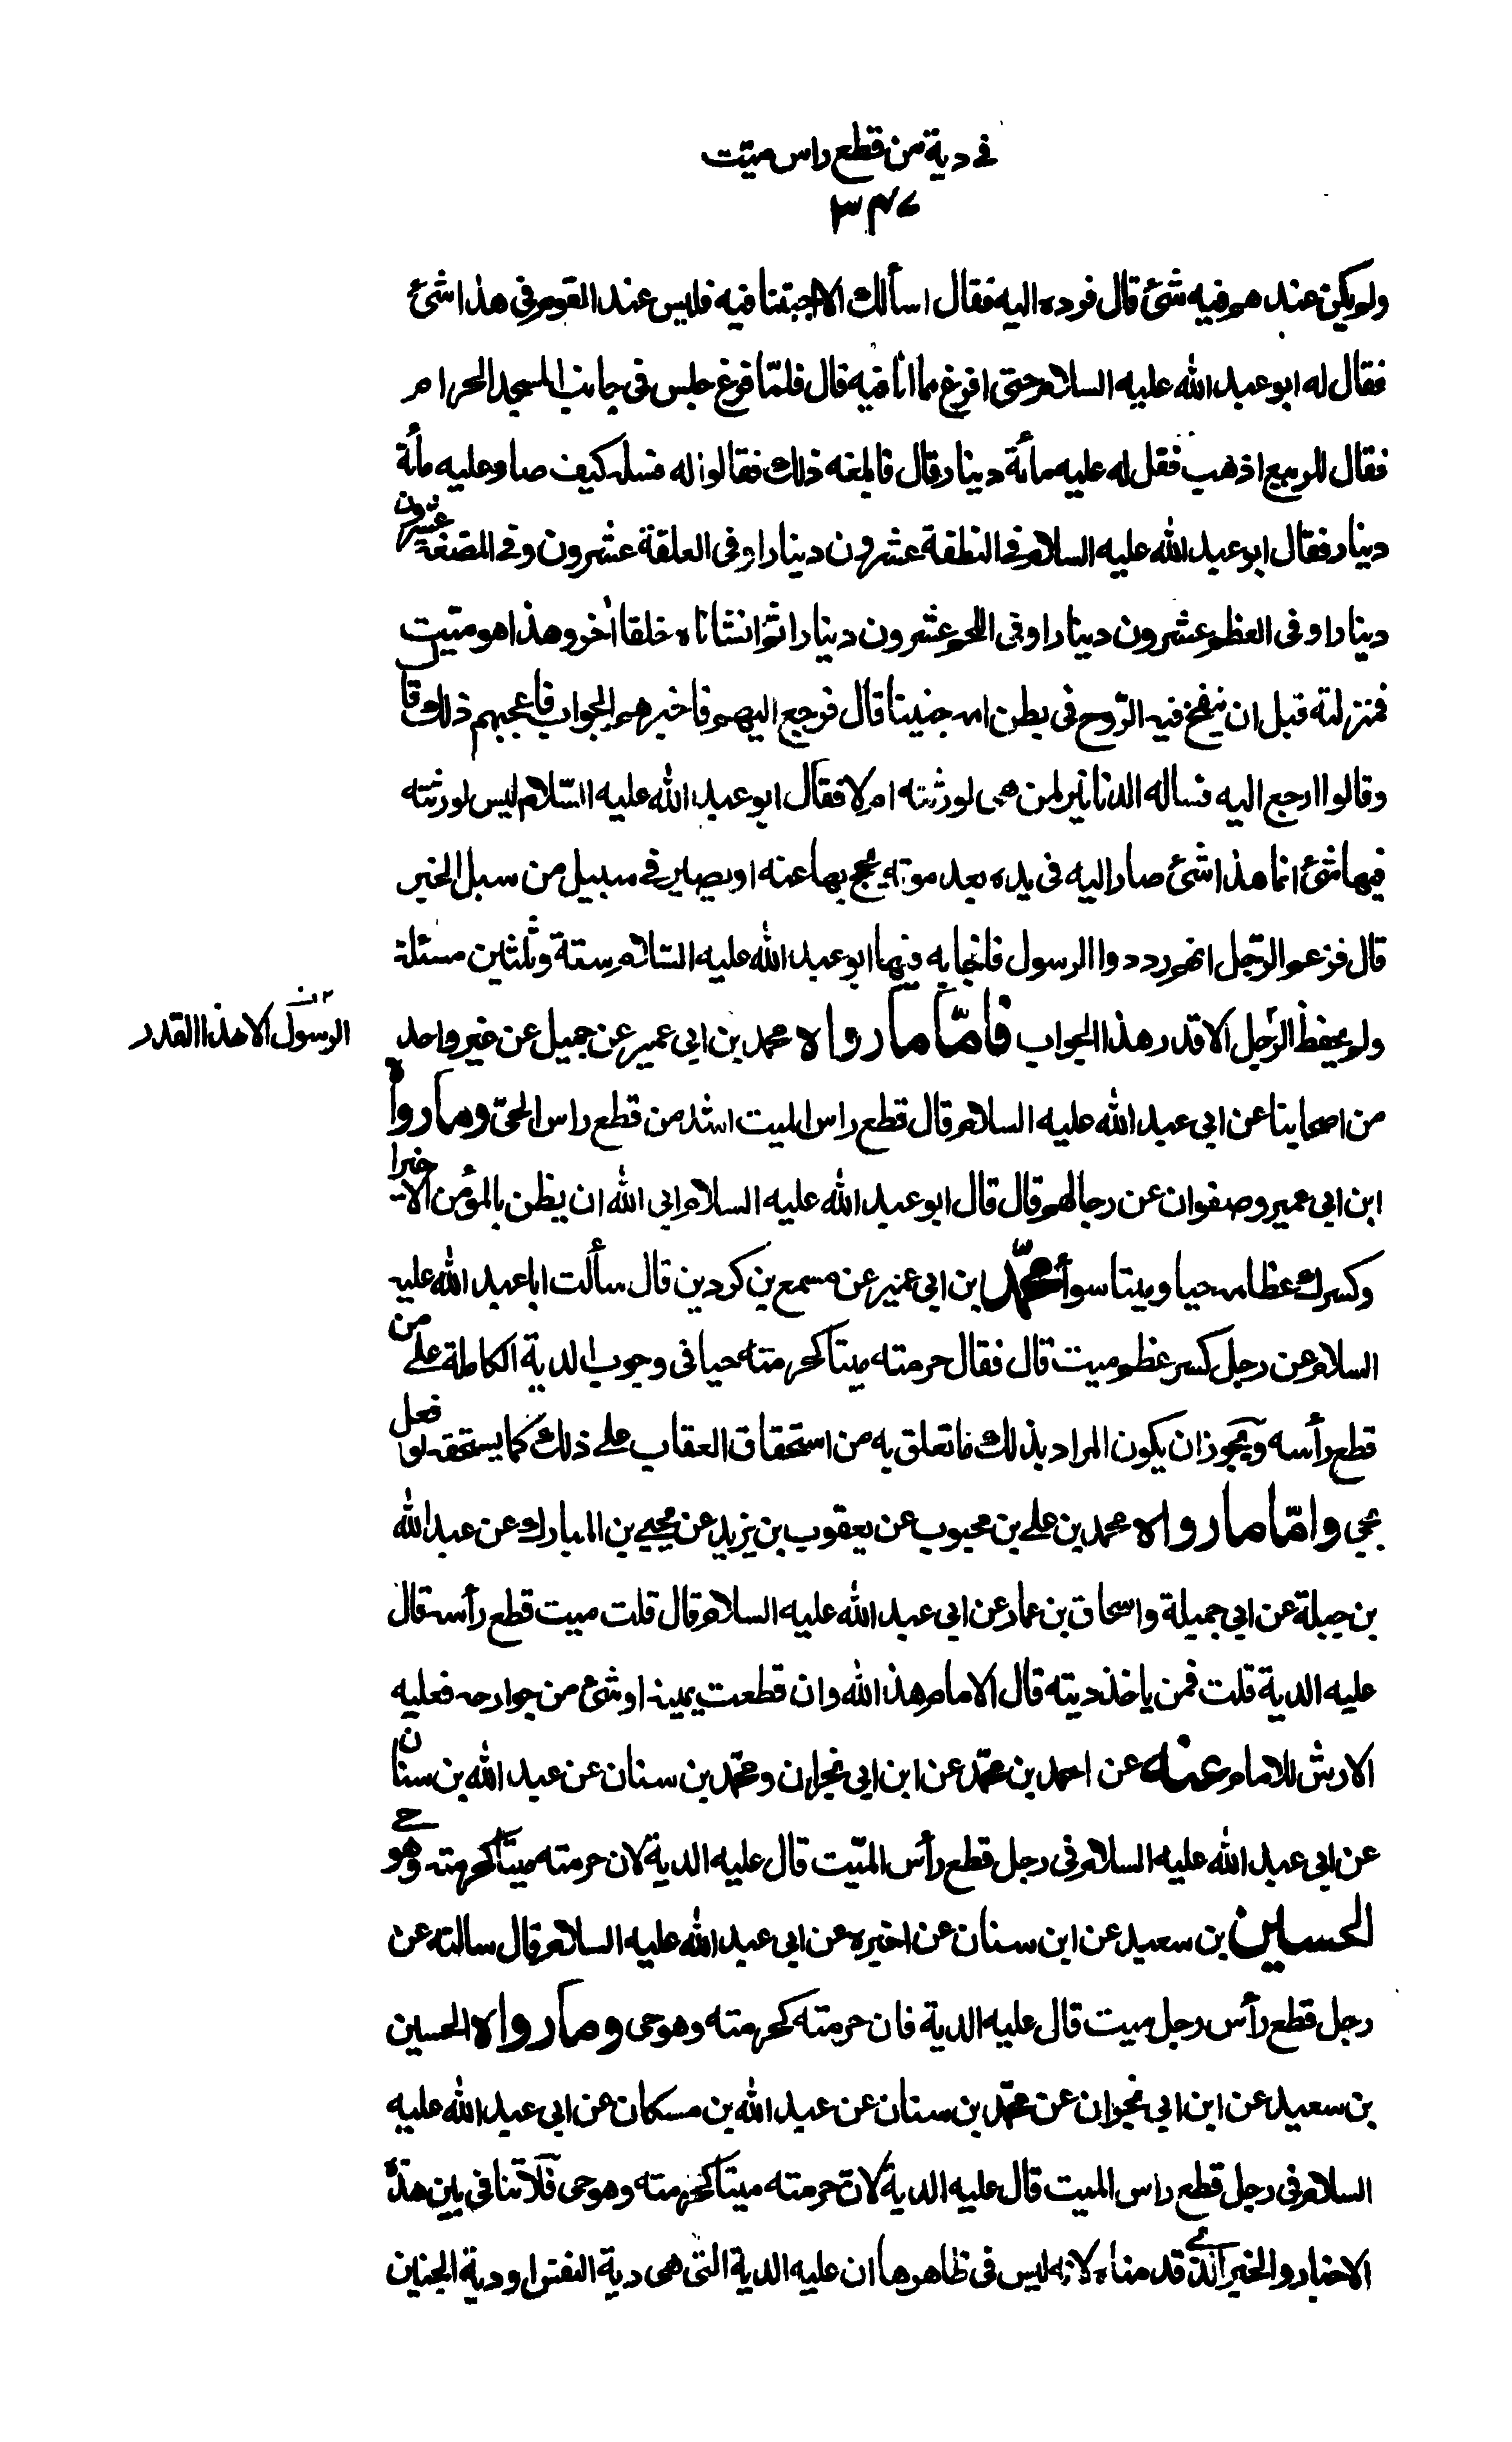 في دية من قطع راس ميّت
٣٤٧
ولم يكن عندهم فيه شئ قال فرده اليه فقال اسألك الا اجبتنا فيه فليس عند القوم في هذا شئ
فقال له ابو عبد الله عليه السلام حتى افرغ مما انا فيه قال فلمّا فرغ جلس في جانب المسجد الحرام
فقال للربيع اذهب فقل له عليه مأة دينار قال فابلغه ذلك فقالوا له فسله كيف صار عليه مأة
دينار فقال ابو عبد الله عليه السلام في النطفة عشرون دينارا وفي العلقة عشرون وفي المضغة عشرون
دينارا وفي العظم عشرون دينارا وفي اللحم عشرون دينارا ثم انشاناه خلقا آخر وهذا هو ميّت
بمنزلته قبل ان ينفخ فيه الرّوح في بطن امه جنينا قال فرجع اليهم فاخبرهم الجواب فاعجبهم ذلك وقال
وقالوا ارجع اليه فساله الدنانير لمن هي لورثته ام لا فقال ابو عبد الله عليه السّلام ليس لورثته
فيها شئ انما هذا شئ صار اليه في يده بعد موته يحج بها عنه او يصير في سبيل من سبل الخير
قال فزعم الرّجل انهم رددوا الرسول فاجابه فيها ابو عبد الله عليه السّلام ستة وثلثين مسئلة
ولم يحفظ الرّجل الا قدر هذا الجواب فأمّا ما رواه محمد بن ابي عمير عن جميل عن غير واحد
الرسول الا هذا القدر
من اصحابنا عن ابي عبد الله عليه السلام قال قطع راس الميت اشد من قطع راس الحيّ وما رواه
ابن ابي عمير وصفوان عن رجالهم قال قال ابو عبد الله عليه السلام ابى الله ان يظن بالمؤمن الا خيرا
وكسرك عظامه حيا وميتا سوأ محمّد ابن ابي عمير عن مسمع بن كردين قال سألت ابا عبد الله عليه
السلام عن رجل كسر عظم ميت قال فقال حرمته ميتا كحرمته حيا في وجوب الدية الكاملة على من
قطع رأسه ويجوز ان يكون المراد بذلك ما تعلق به من استحقاق العقاب على ذلك كما يستحقه لو فعل
بحي وامّا ما رواه محمد بن علي بن محبوب عن يعقوب بن يزيد عن يحيى بن المبارك عن عبد الله
بن جبلة عن ابي جميلة واسحاق بن عمار عن ابي عبد الله عليه السلام قال قلت ميت قطع رأسه قال
عليه الدية قلت فمن ياخذ ديته قال الامام هذا الله وان قطعت يمينه او شئ من جوارحه فعليه
الارش للامام عنه عن احمد بن محمّد عن ابن ابي نجران ومحمّد بن سنان عن عبد الله بن سنان
عن ابي عبد الله عليه السلام في رجل قطع رأس الميّت قال عليه الدية لان حرمته ميتا كحرمته وهو حي
الحسين بن سعيد عن ابن سنان عن اخبره عن ابي عبد الله عليه السلام قال سالته عن
رجل قطع رأس رجل ميت قال عليه الدية فان حرمته كحرمته وهو حي وما رواه الحسين
بن سعيد عن ابن ابي نجران عن محمّد بن سنان عن عبد الله بن مسكان عن ابي عبد الله عليه
السلام في رجل قطع راس الميت قال عليه الدية لانّ حرمته ميتا كحرمته وهو حي فلا تنافي بين هذه
الاخبار والخبر الذي قدمناه لانه ليس في ظاهرها ان عليه الدية التي هي دية النفس او دية الجنين